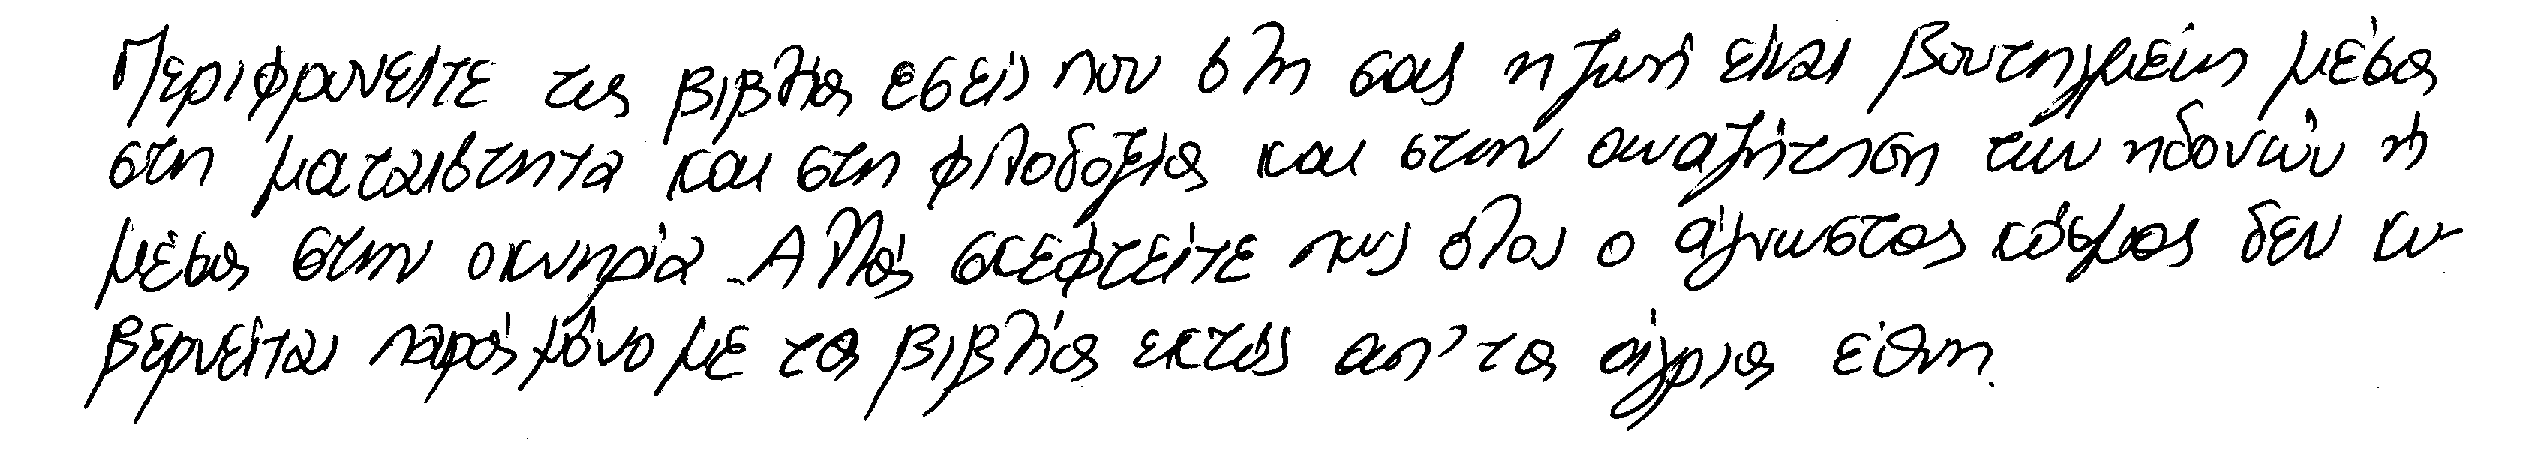 Περιφρονείτε τα βιβλία εσείς που όλη σας η ζωή είναι βουτηγμένη μέσα
στη ματαιότητα και στη φιλοδοξία και στην αναζήτηση των ηδονών ή
μέσα στην οκνηρία. Αλλά σκεφτείτε πως όλος ο άγνωστος κόσμος δεν κυ-
βερνείται παρά μόνο με τα βιβλία εκτός απ' τα άγρια έθνη.